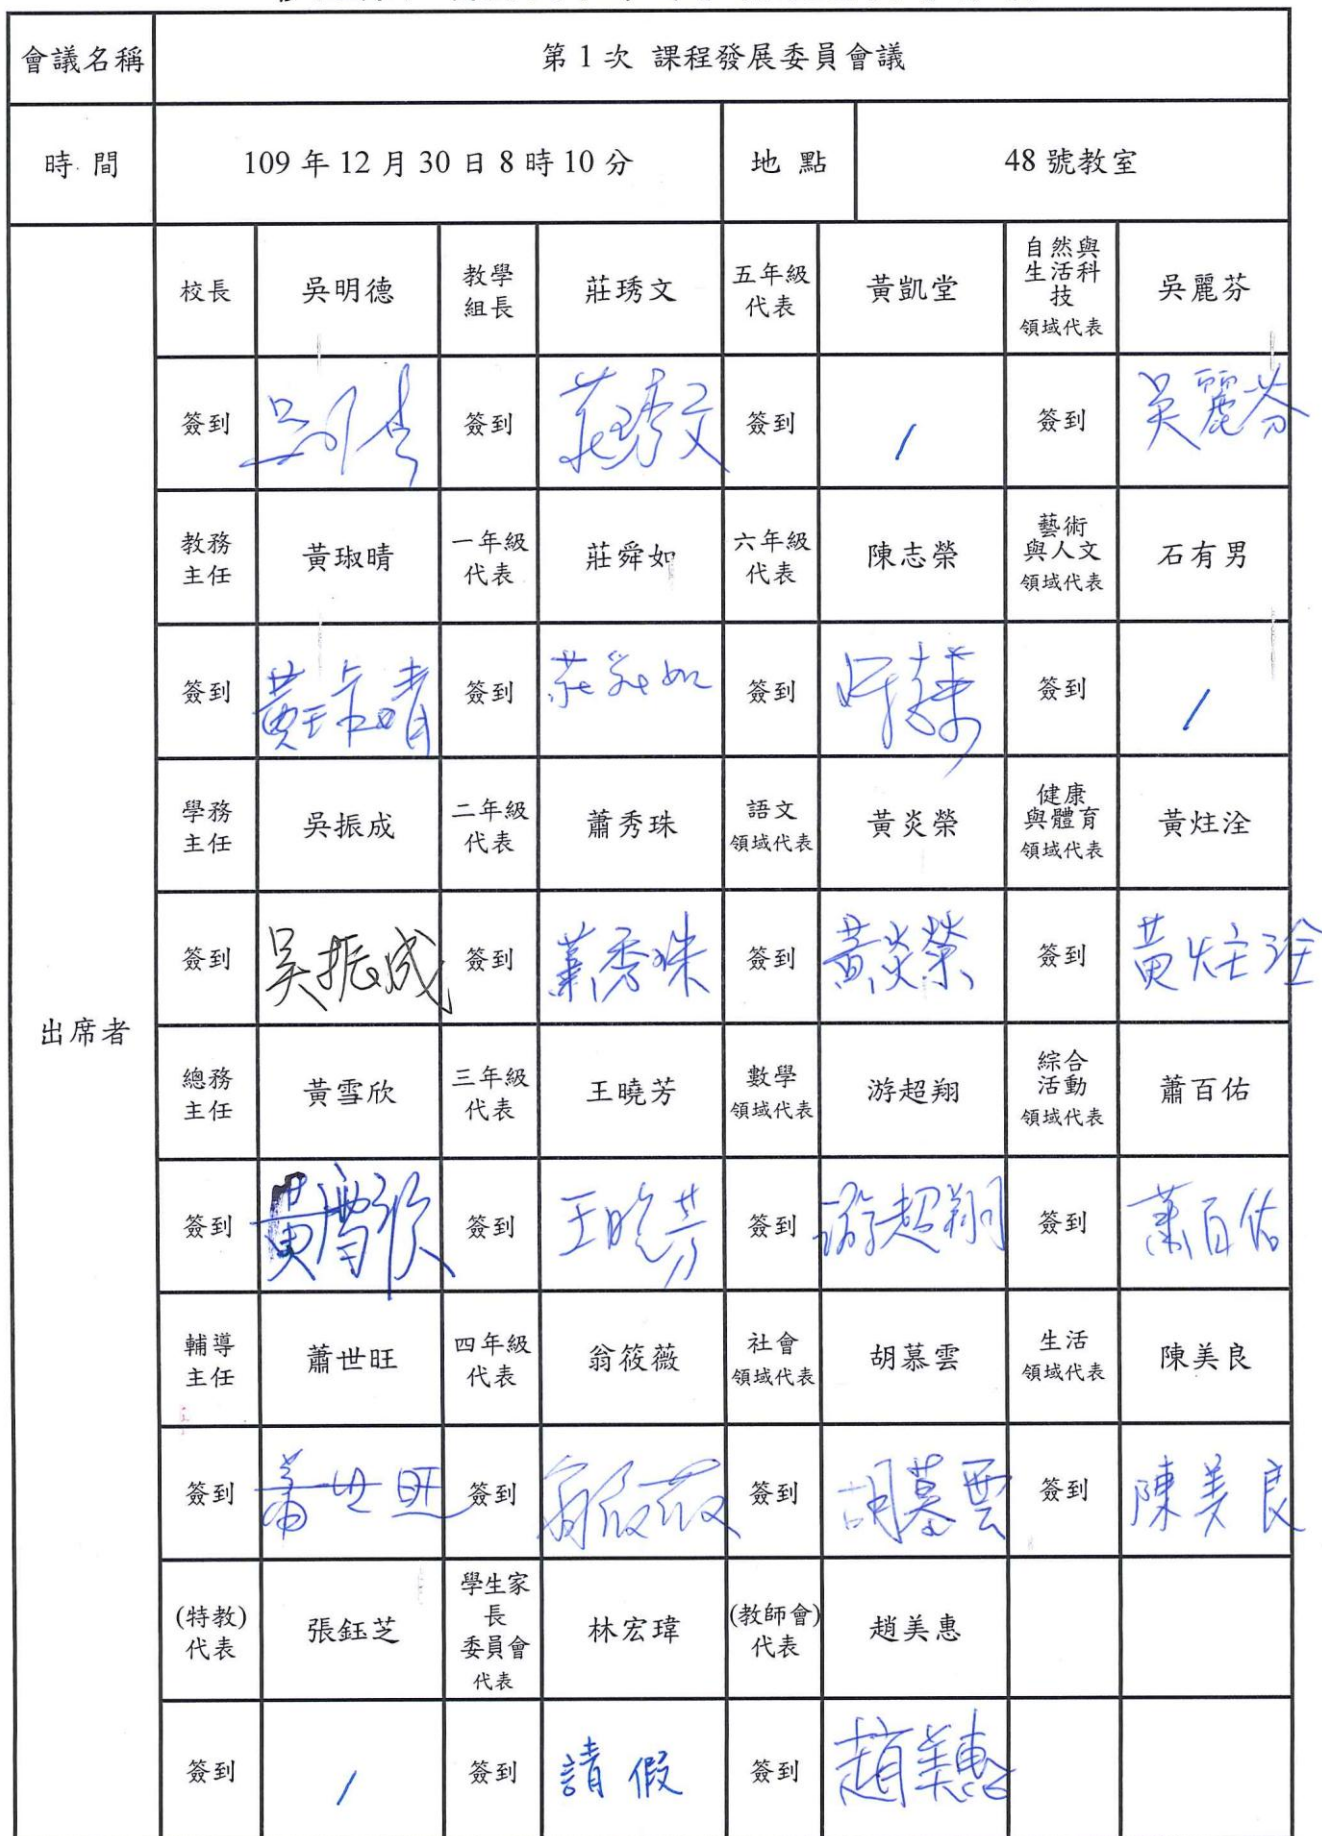 會議名稱 第1次 課程發展委員會議
時間 109年12月30日8時10分 地點 48號教室
出席者
校長 吳明德 教學組長 莊琇文 五年級代表 黃凱堂 自然與生活科技領域代表 吳麗芬
簽到 簽到 莊琇文 簽到 / 簽到 吳麗芬
教務主任 黃琡晴 一年級代表 莊舜如 六年級代表 陳志榮 藝術與人文領域代表 石有男
簽到 黃琡晴 簽到 莊舜如 簽到 簽到 /
學務主任 吳振成 二年級代表 蕭秀珠 語文領域代表 黃炎榮 健康與體育領域代表 黃炷洤
簽到 吳振成 簽到 蕭秀珠 簽到 黃炎榮 簽到 黃炷洤
總務主任 黃雪欣 三年級代表 王曉芳 數學領域代表 游超翔 綜合活動領域代表 蕭百佑
簽到 黃雪欣 簽到 王曉芳 簽到 游超翔 簽到 蕭百佑
輔導主任 蕭世旺 四年級代表 翁筱薇 社會領域代表 胡慕雲 生活領域代表 陳美良
簽到 蕭世旺 簽到 翁筱薇 簽到 胡慕雲 簽到 陳美良
(特教)代表 張鈺芝 學生家長委員會代表 林宏瑋 (教師會)代表 趙美惠
簽到 / 簽到 請假 簽到 趙美惠